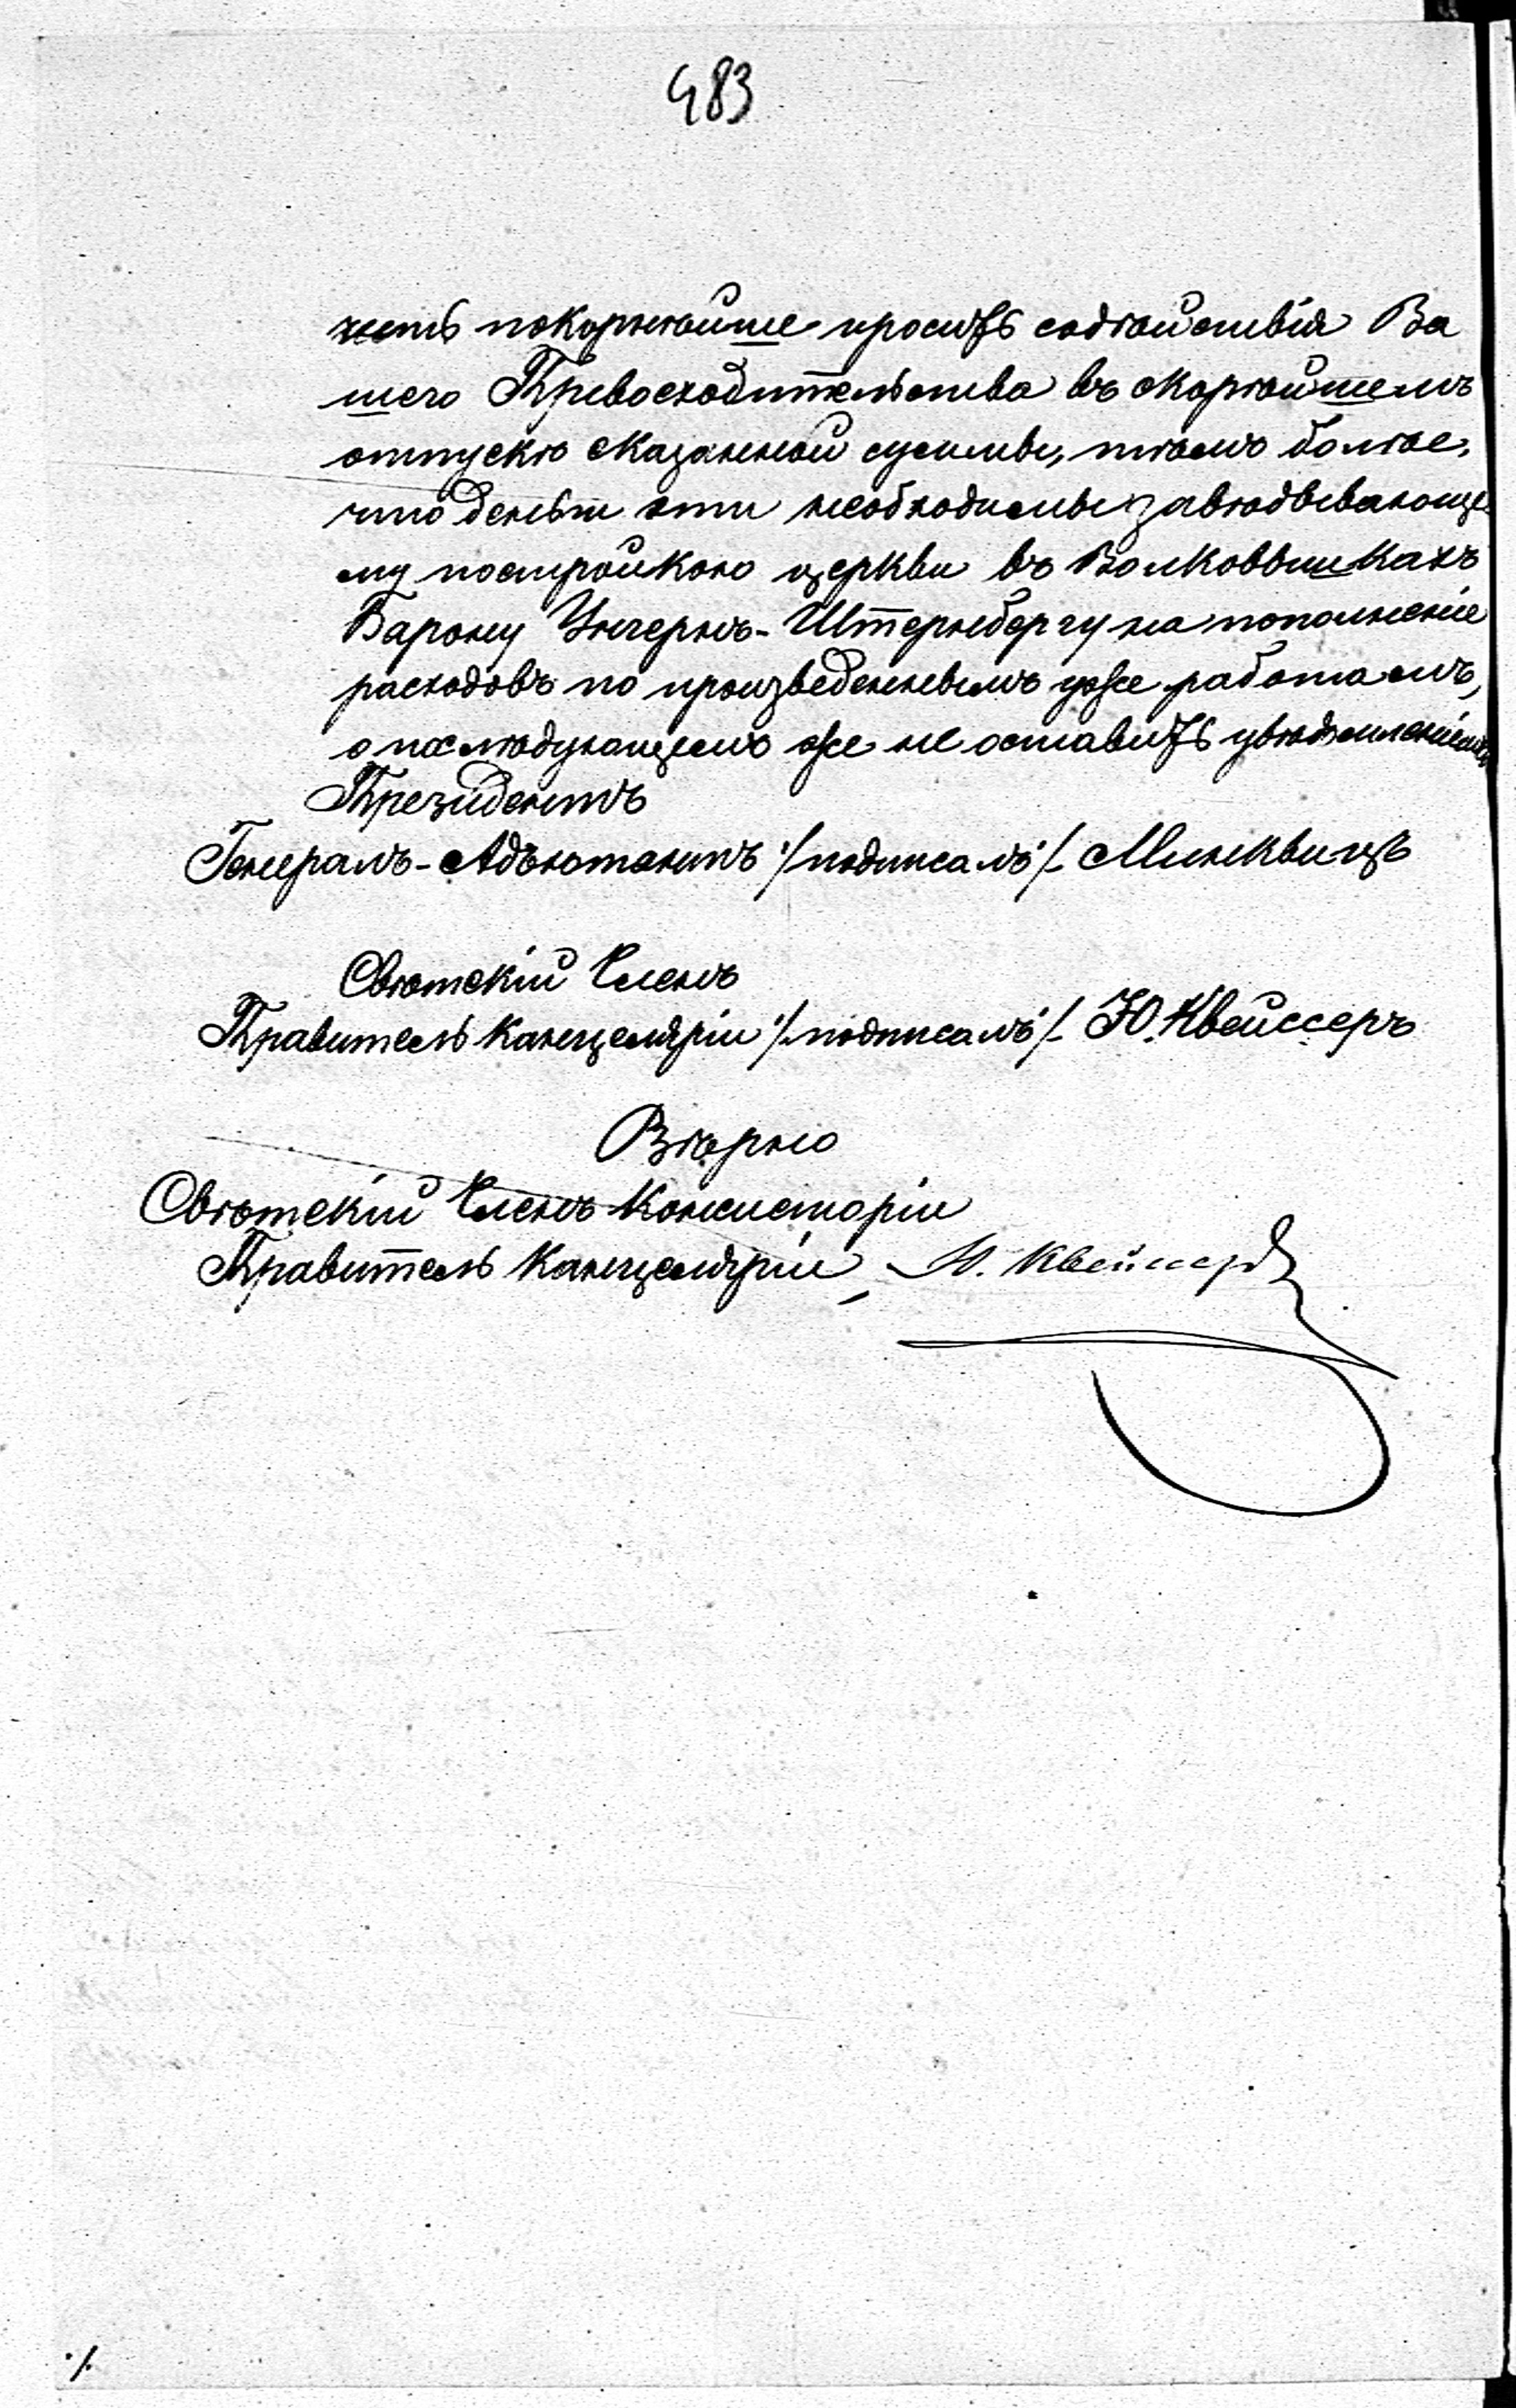 483
честь покорнѣйше просить содѣйствія Ва
шего Превосходительства въ скорѣйшемъ
отпускѣ сказанной суммы, тѣмъ болѣе,
что деньги эти необходимы завѣдывающе
му постройкою церкви въ Волковышкахъ
Барону Унгернъ-Штернбергу на пополненіе
расходовъ по произведеннымъ уже работамъ,
о послѣдующемъ же не оставить увѣдомленіемъ.
Президентъ
Генералъ-Адъютантъ ./подписалъ/. Минквицъ
Свѣтскій Членъ
Правитель Канцеляріи ./подписалъ/. Ю. Квейссеръ
Вѣрно
Свѣтскій Членъ Консисторіи
Правитель Канцеляріи, Ю. Квейссеръ
./.